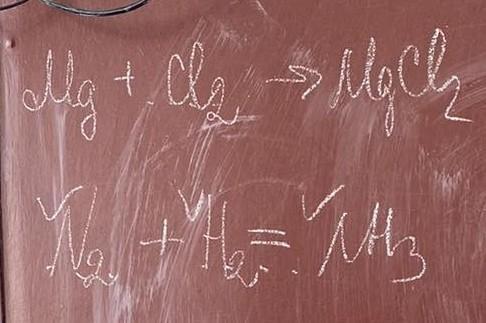 Mg + Cl₂ → MgCl₂
N₂ + H₂ = NH₃